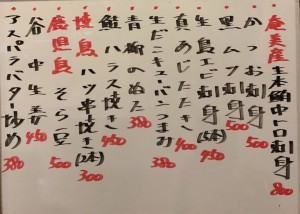 奄美産 本鮪中トロ刺身 800
かつお刺身 500
黒ムツ刺身 500
生鳥エビ刺身(5本) 450
真あじたたき 400
生だこキューバンつまみ
青柳のぬた 380
鮭ハラス焼き 450
焼鳥ハツ串焼き(2本) 300
鹿児島そら豆 500
谷中生姜 450
アスパラバター炒め 380